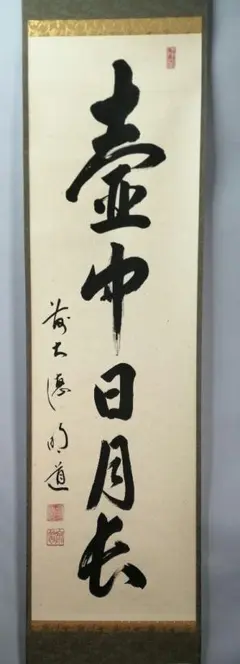 壷中日月長
前大徳明道